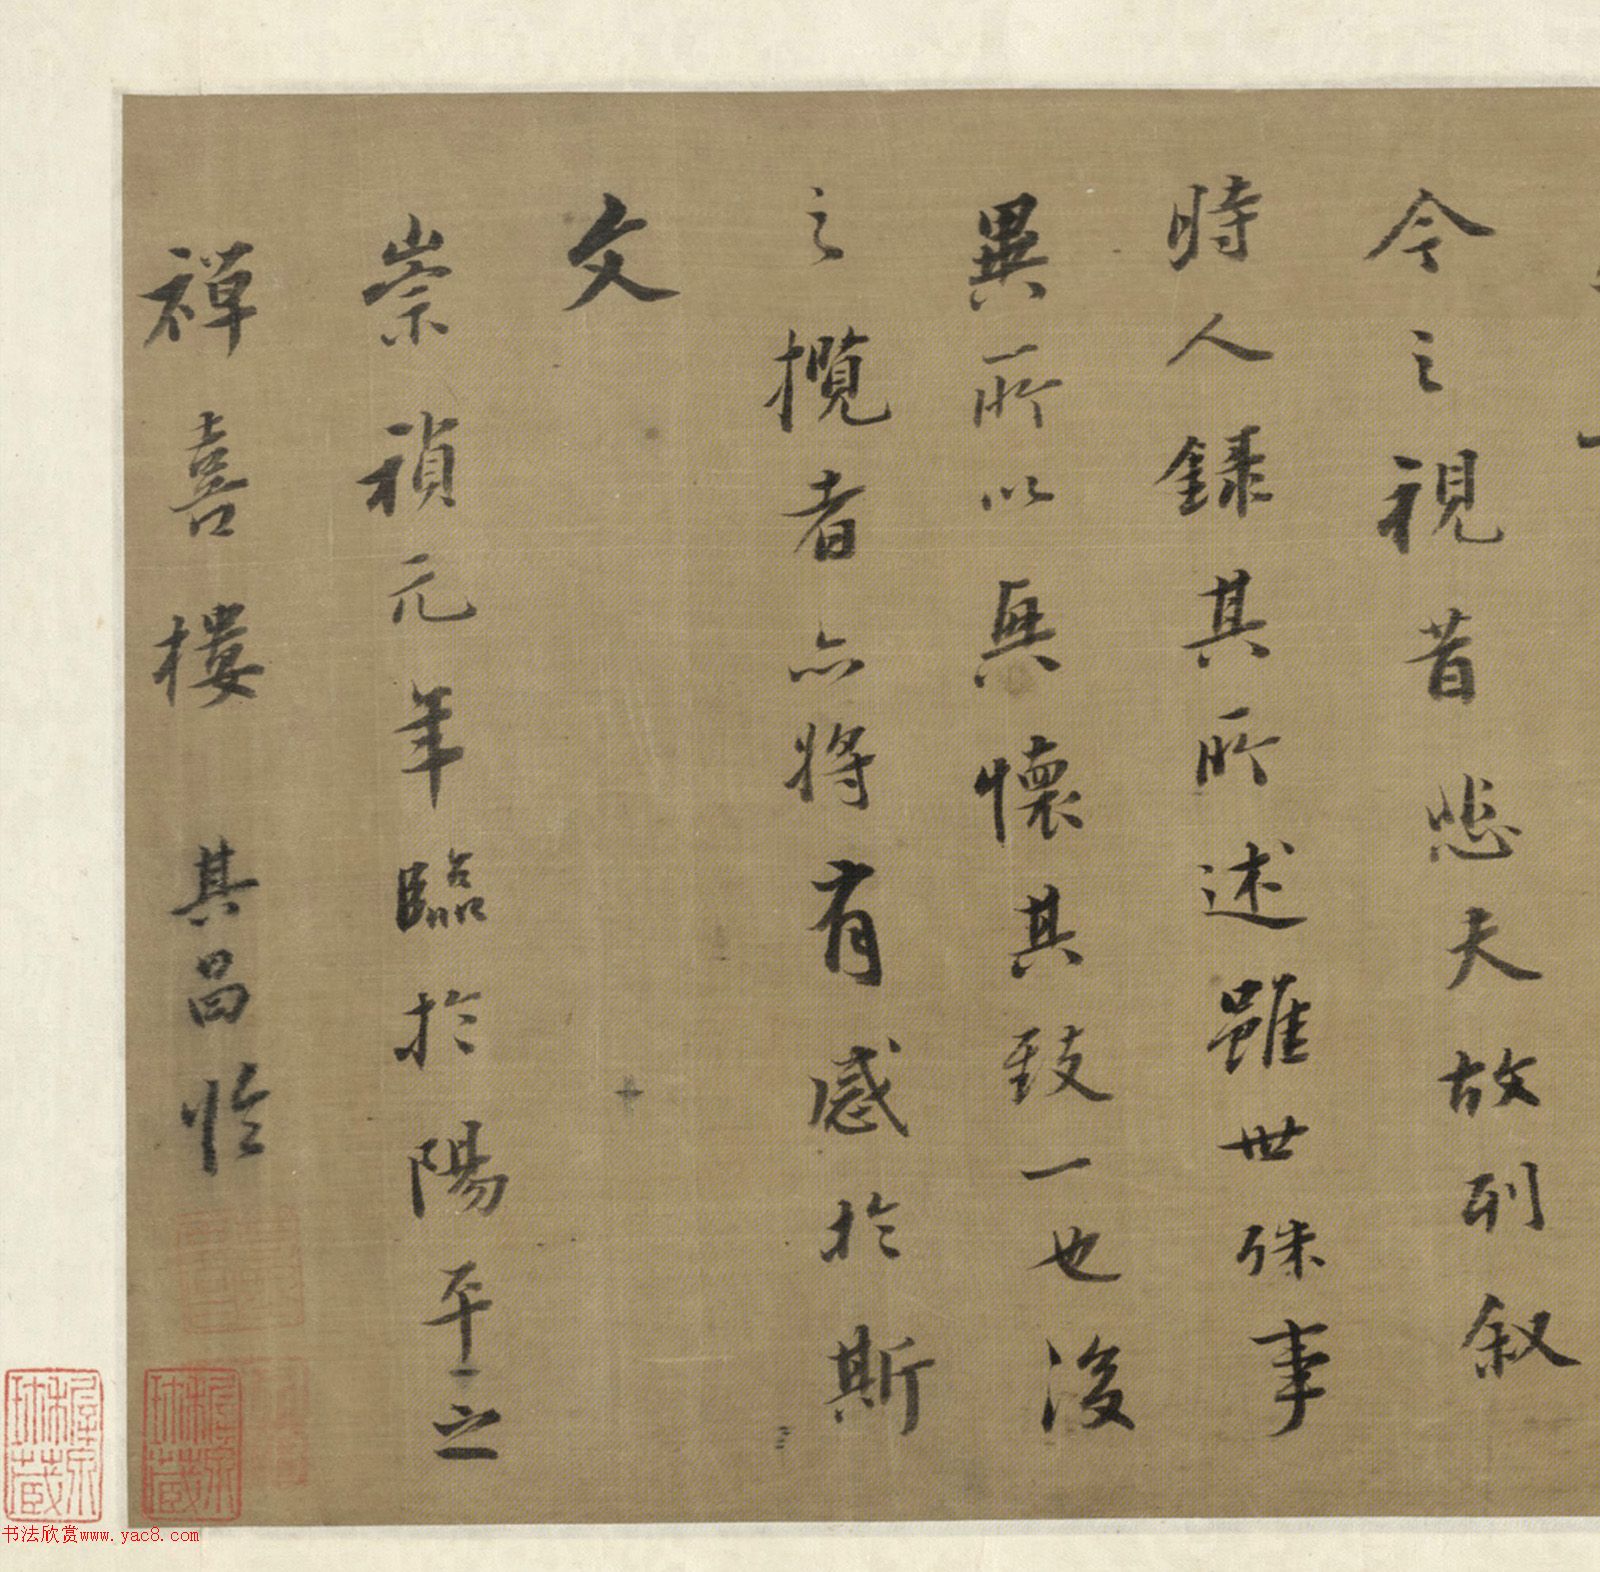 今之視昔悲夫故列叙
時人録其所述雖世殊事
異所以興懷其致一也後
之攬者亦将有感於斯
文
崇禎元年臨於陽平之
禅喜樓 其昌临
珍藏
书法欣赏www.yac8.com